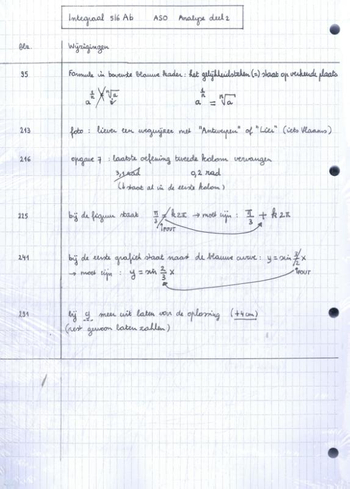 Integraal 5/6 Ab ASO Analyse deel 2
Blz. Wijzigingen
95 Formule in bovenste blauwe kader : het gelijkheidsteken (=) staat op verkeerde plaats
213 foto : liever een wegwijzer met "Antwerpen" of "Lier" (iets Vlaams)
216 opgave 7 : laatste oefening tweede kolom vervangen
3,1 rad 0,2 rad
(staat al in de eerste kolom)
225 bij de figuur staat π/3 × k2π → moet zijn : π/3 + k2π
FOUT
241 bij de eerste grafiek staat naast de blauwe curve : y = sin 3/2 x
→ moet zijn : y = sin 2/3 x FOUT
291 bij y meer wit laten voor de oplossing (+4cm)
(rest gewoon laten zakken)